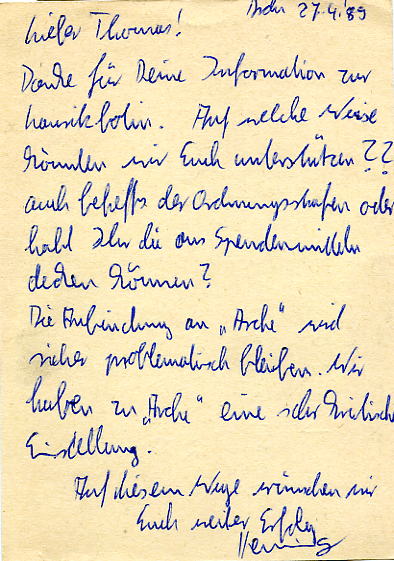 27.4.89
Lieber Thomas!
Danke für Deine Information zur
Auf welche Weise
könnten wir Euch unterstützen??
auch behelfs der Ordnungsstrafen oder
habt Ihr die aus Spendenmitteln
decken können?
Die Anbindung an „Arche“ wird
sicher problematisch bleiben. Wir
haben zu „Arche“ eine sehr kritische
Einstellung.
Auf diesem Wege wünschen wir
Euch weiter Erfolg
Henning